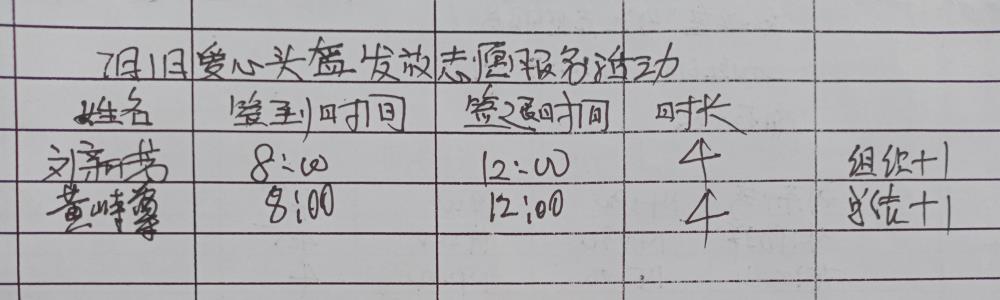 7月1日爱心头盔发放志愿服务活动
姓名 签到时间 签退时间 时长
刘新芳 8:00 12:00 4 组织+1
黄峙尊 8:00 12:00 4 总结+1